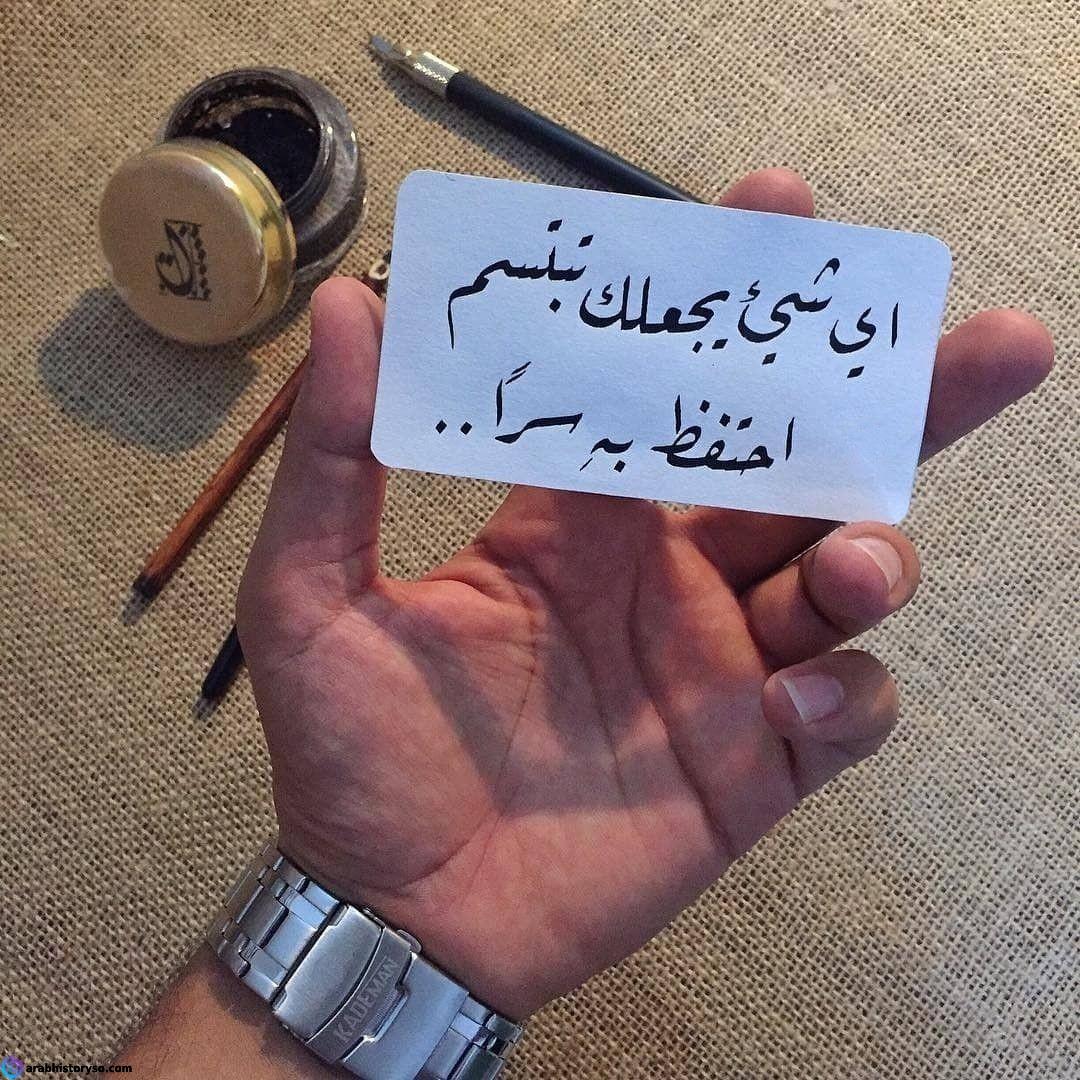 اي شيئ يجعلك تبتسم
احتفظ بهِ سراً..
KADEMAN
arabhistoryso.com